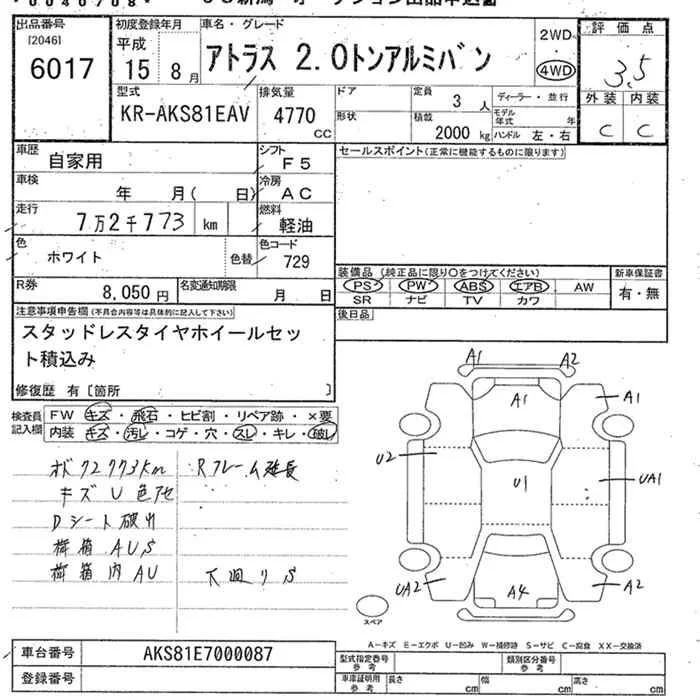 出品番号
[2046]
6017
初度登録年月
平成
15 8月
車名・グレード
アトラス 2.0トンアルミバン
2WD
4WD
評価点
3.5
外装 内装
C C
型式
KR-AKS81EAV
排気量
4770
CC
ドア
形状
定員
3 人
積載
2000 kg
ディーラー・並行
モデル年式 年
ハンドル 左・右
車歴
自家用
シフト
F5
セールスポイント(正常に機能するものに限ります)
車検
年 月( 日)
冷房
AC
走行
7万2千773 km
燃料
軽油
色
ホワイト
色替
色コード
729
R券
8,050円
名変通知期限
月 日
装備品 (純正品に限り○をつけてください)
PS PW ABS エアB AW
SR ナビ TV カワ
新車保証書
有・無
後日品
注意事項申告欄(不具合内容等は具体的に記入して下さい)
スタッドレスタイヤホイールセッ
ト積込み
修復歴 有〔箇所 〕
検査員
記入欄
FW キズ・飛石・ヒビ割・リペア跡・×要
内装 キズ・汚レ・コゲ・穴・スレ・キレ・破レ
キズ U 色アセ
Rフレーム延長
Dシート破れ
荷箱 AU,S
荷箱内 AU
下廻り S
A1 A2
A1
A1
U2
U1
UA1
UA2
A4
A2
スペア
A−キズ E−エクボ U−凹み W−補修跡 S−サビ C−腐食 XX−交換済
車台番号
AKS81E7000087
登録番号
型式指定番号
参考
類別区分番号
参考
車庫証明用
参考
長さ cm 幅 cm 高さ cm